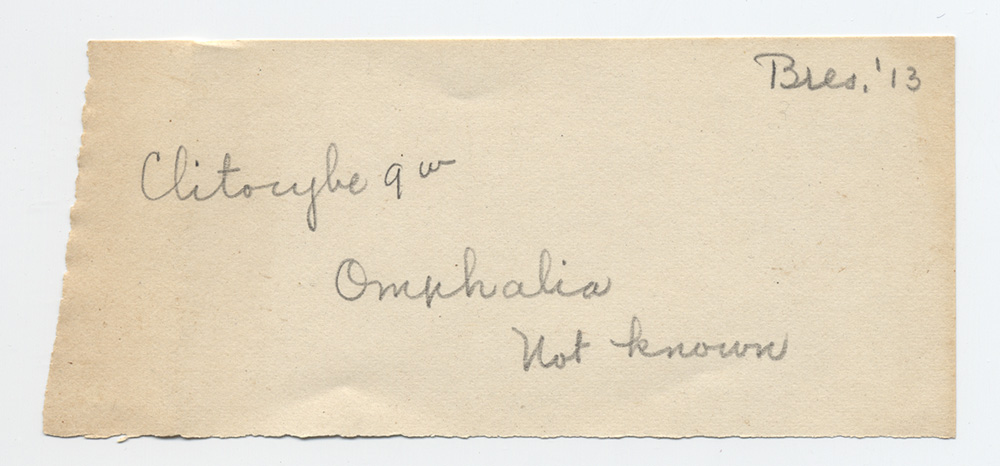 Bres. '13
Clitocybe 9 w
Omphalia
Not known